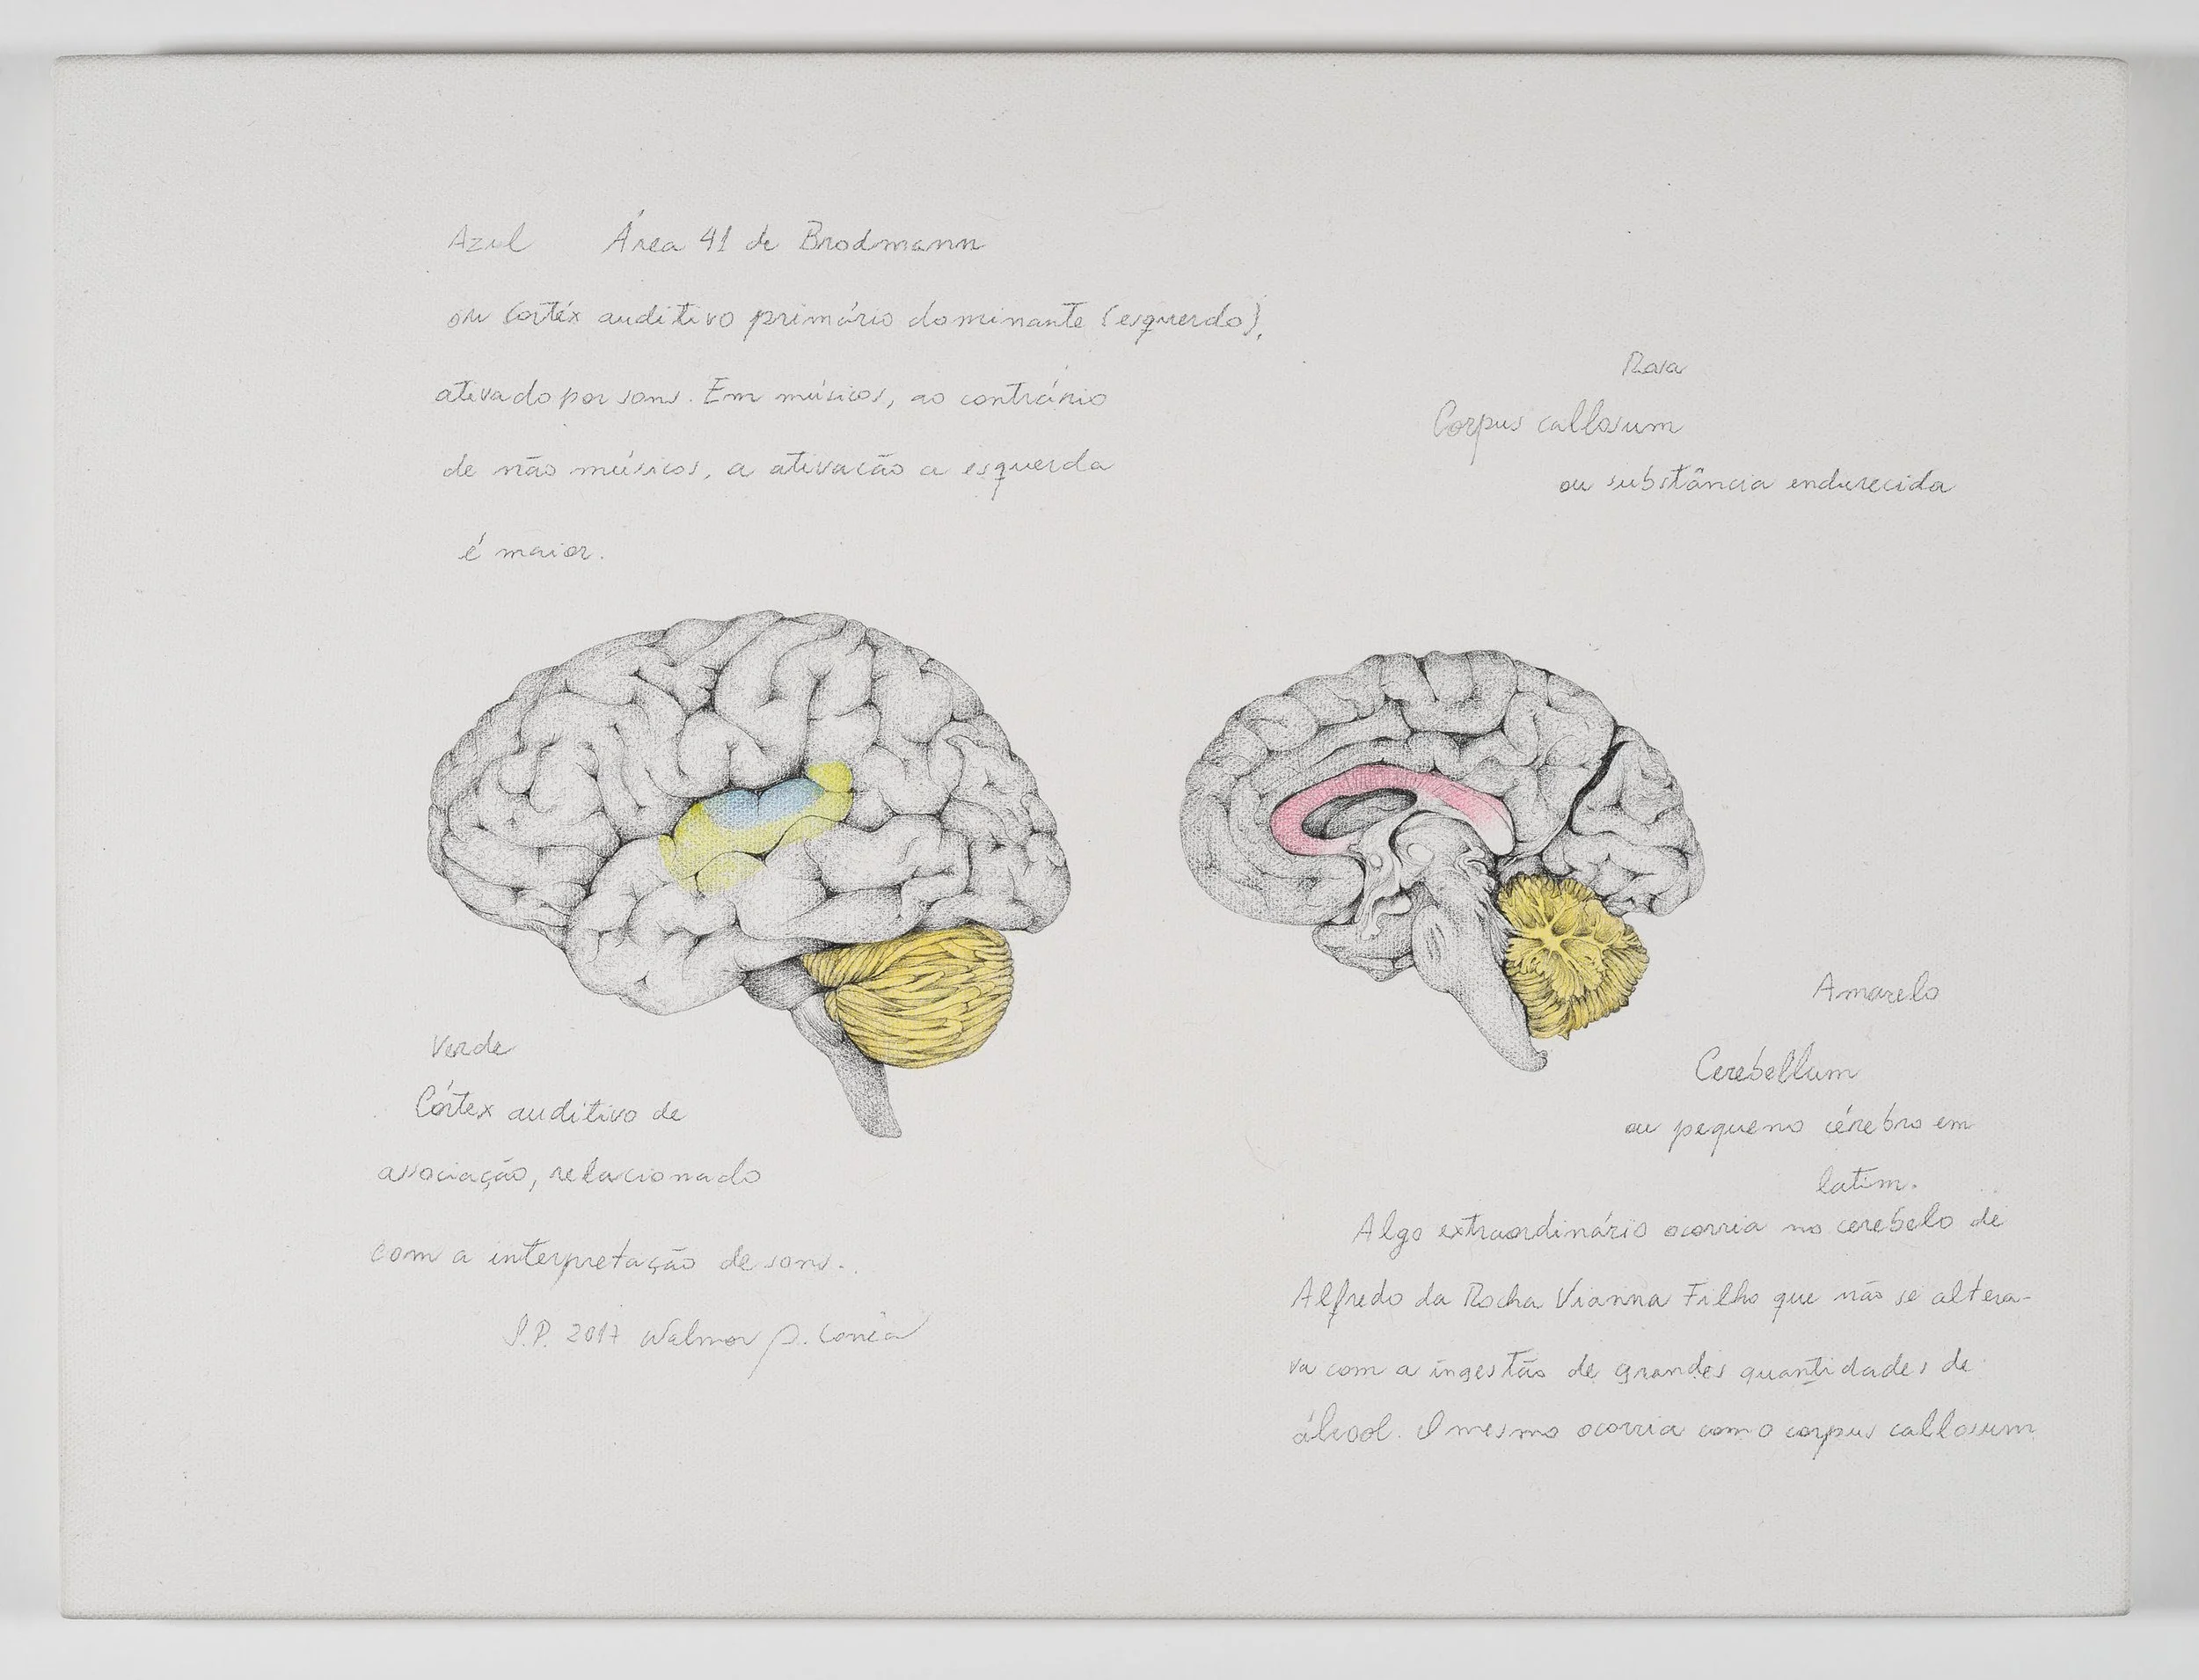 Azul Área 41 de Brodmann
ou Cortéx auditivo primário dominante (esquerdo),
ativado por sons. Em músicos, ao contrário
de não músicos, a ativação a esquerda
é maior.
Rosa
Corpus callosum
ou substância endurecida
Verde
Córtex auditivo de
associação, relacionado
com a interpretação de sons.
S.P. 2017 Walmor p. Corrêa
Amarelo
Cerebellum
ou pequeno cérebro em
latim.
Algo extraordinário ocorria no cerebelo de
Alfredo da Rocha Vianna Filho que não se altera-
va com a ingestão de grandes quantidades de
álcool. O mesmo ocorria com o corpus callosum